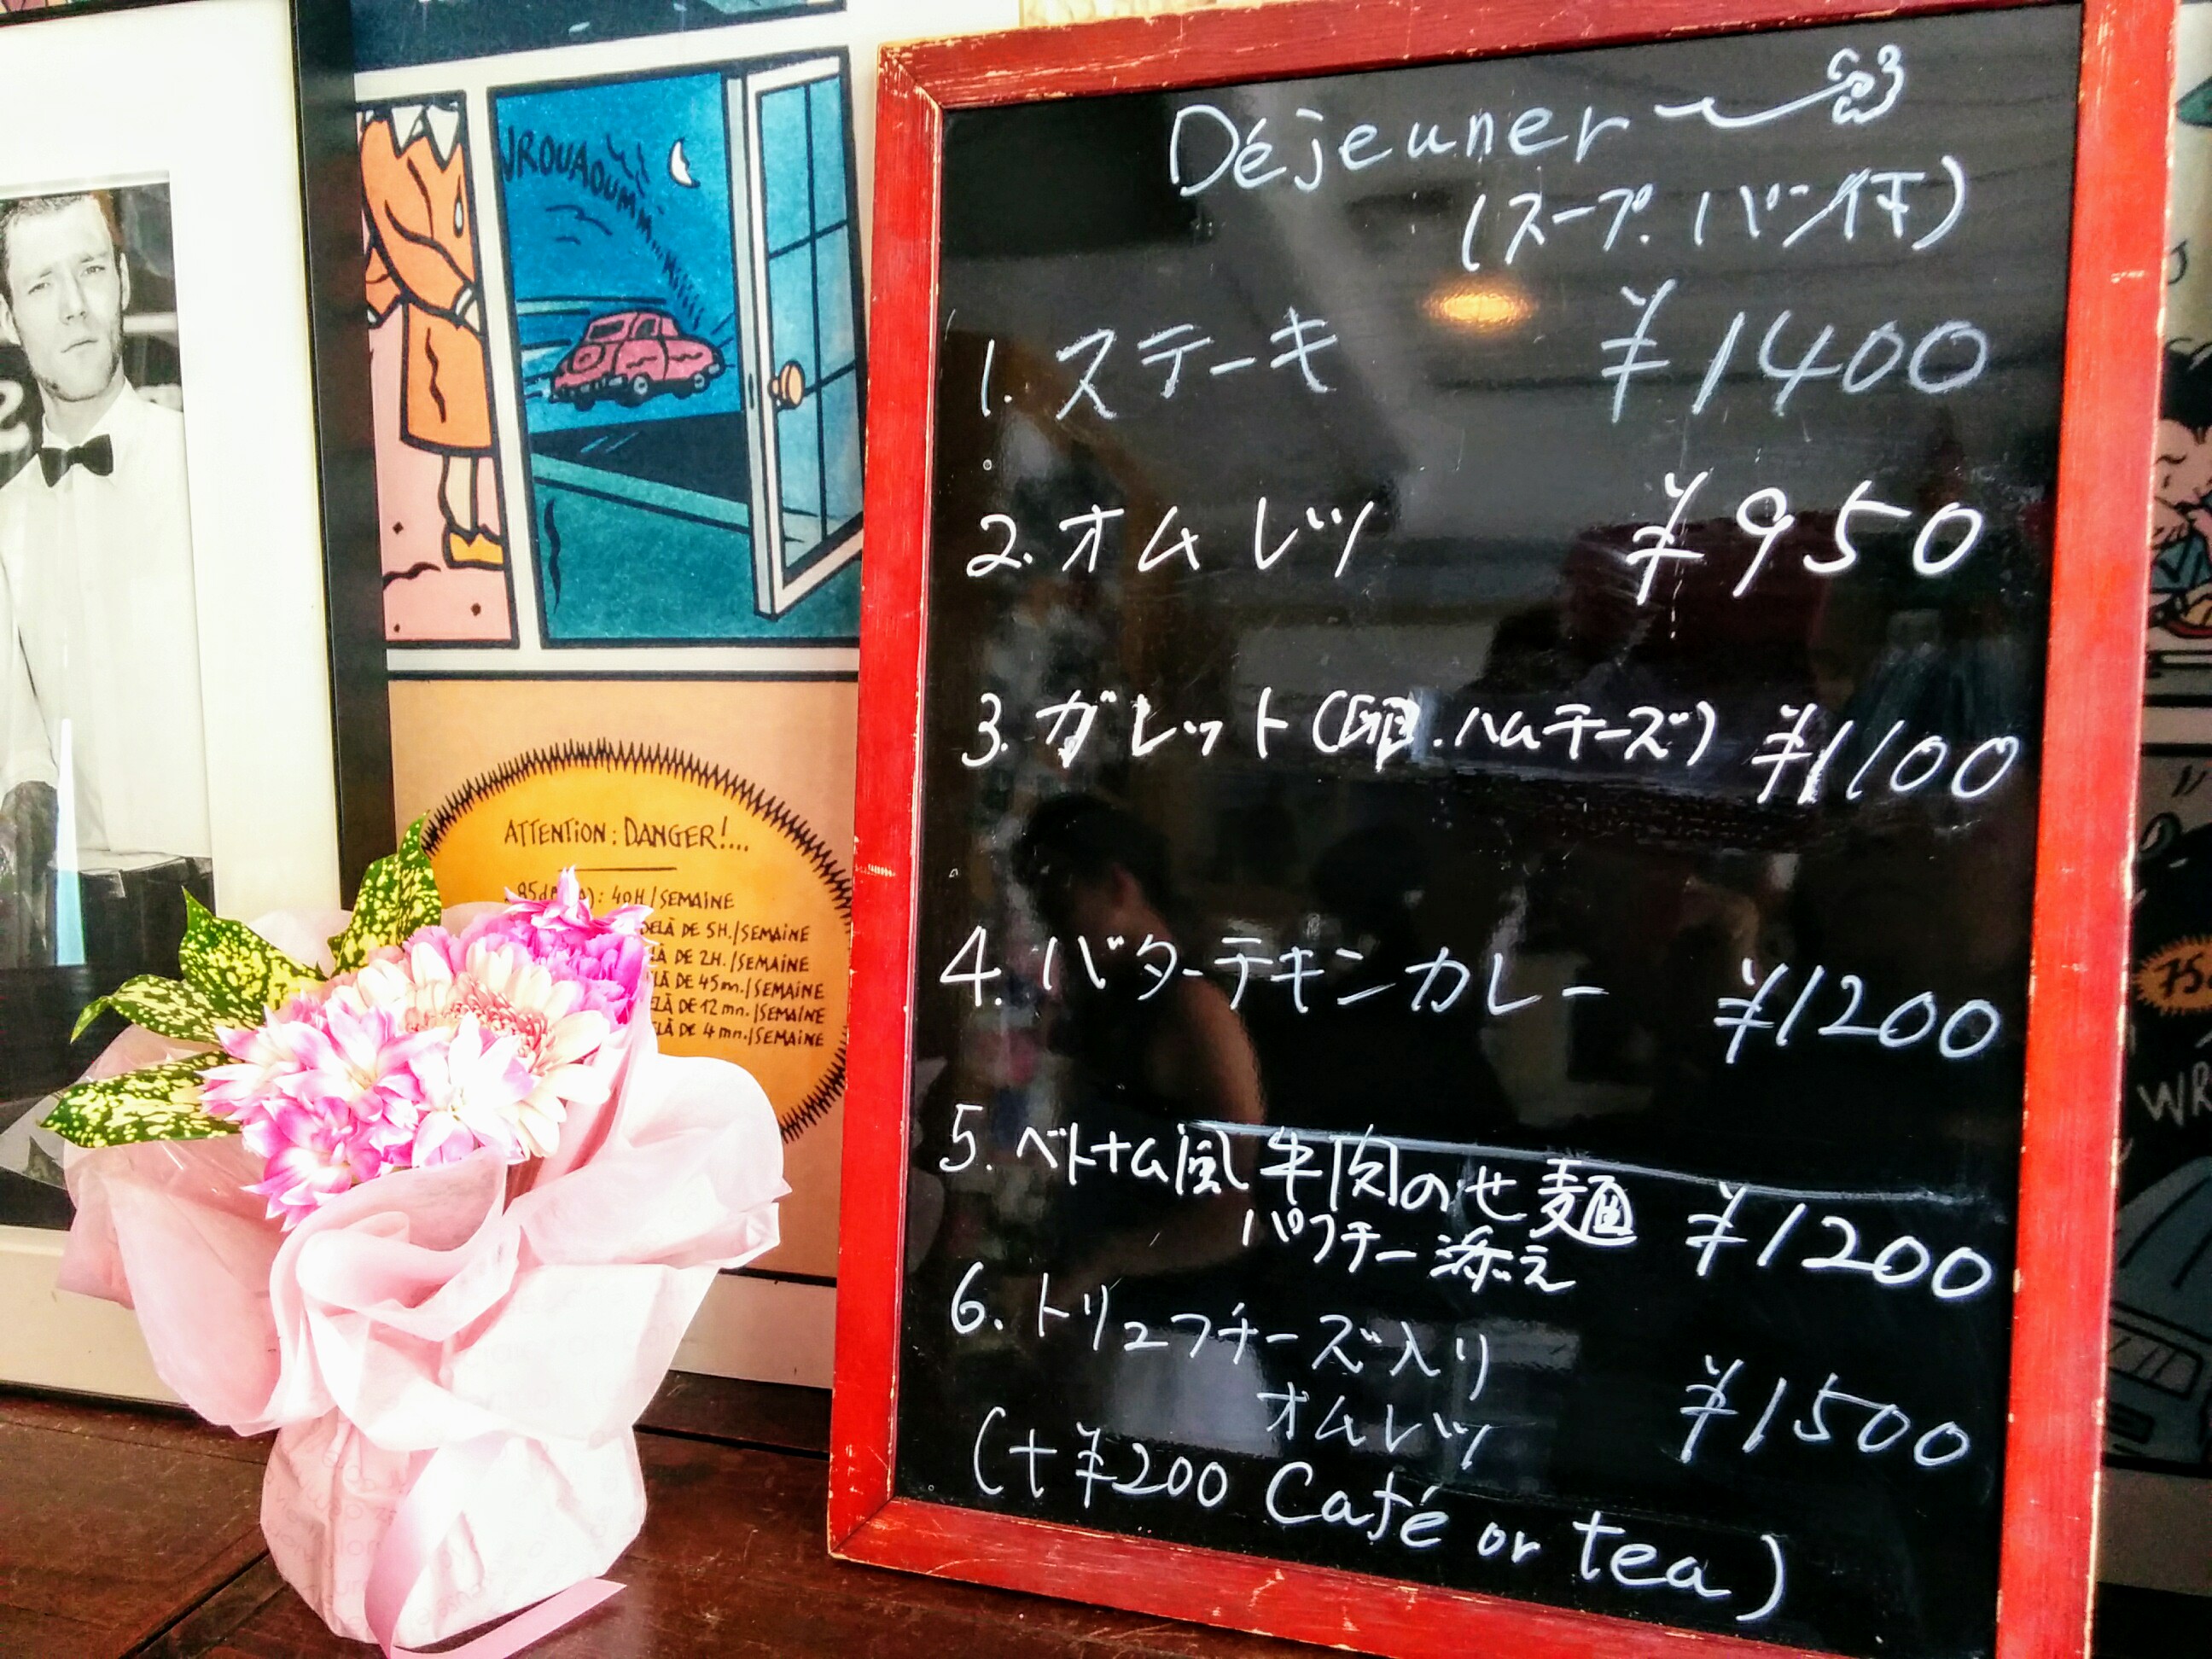 VROUAOUMM
ATTENTION : DANGER!...
40H/SEMAINE
DELÀ DE 5H./SEMAINE
LÀ DE 2H./SEMAINE
LÀ DE 45mn./SEMAINE
ELÀ DE 12mn./SEMAINE
ELÀ DE 4mn./SEMAINE
Déjeuner
(スープ.パン付)
1.ステーキ ¥1400
2.オムレツ ¥950
3.ガレット(卵.ハムチーズ) ¥1100
4.バターチキンカレー ¥1200
5.ベトナム風牛肉のせ麺 ¥1200
パクチー添え
6.トリュフチーズ入り
オムレツ ¥1500
(+¥200 Café or tea)
75
WR